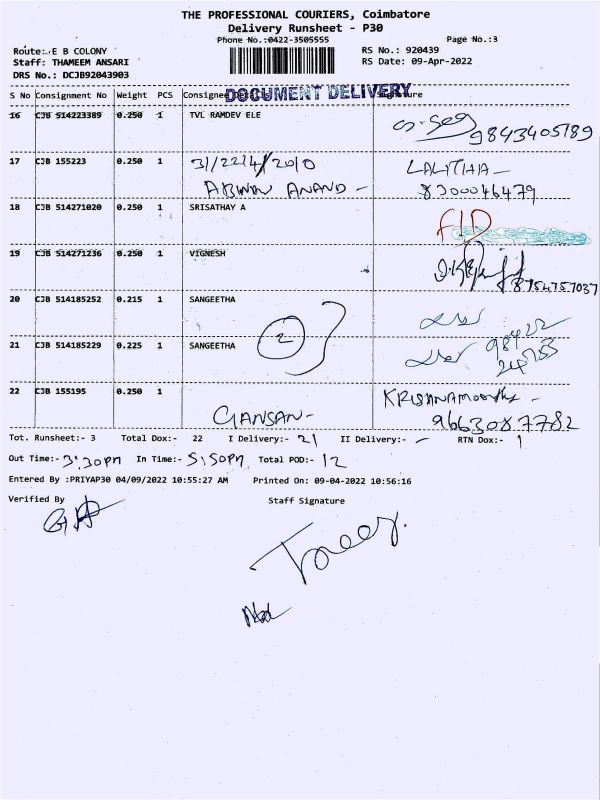 THE PROFESSIONAL COURIERS, Coimbatore
Delivery Runsheet - P30
Phone No.:0422-3505555
Page No.:3
Route: E B COLONY
RS No.: 920439
Staff: THAMEEM ANSARI
RS Date: 09-Apr-2022
DRS No.: DCJB92043903
DOCUMENT DELIVERY
S No Consignment No Weight PCS Consignee Details Signature
16 CJB 514223389 0.250 1 TVL RAMDEV ELE
9843405189
17 CJB 155223 0.250 1 31/2214/2010 LALITHA-
ANAND - 8300046479
18 CJB 514271020 0.250 1 SRISATHAY A
19 CJB 514271236 0.250 1 VIGNESH
8754757037
20 CJB 514185252 0.215 1 SANGEETHA
2
21 CJB 514185229 0.225 1 SANGEETHA
98422
24755
22 CJB 155195 0.250 1 KRISHNAMOORTHY -
GANSAN- 9663087782
Tot. Runsheet:- 3 Total Dox:- 22 I Delivery:- 21 II Delivery:- - RTN Dox:- 1
Out Time:- 3:30pm In Time:- 5:50pm Total POD:- 12
Entered By :PRIYAP30 04/09/2022 10:55:27 AM Printed On: 09-04-2022 10:56:16
Verified By Staff Signature